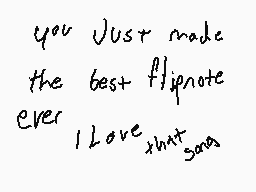 you Just made
the best flipnote
ever
I Love that song